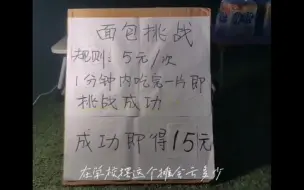 面包挑战
规则：5元/次
1分钟内吃完一片即
挑战成功
成功即得15元
在学校摆这个摊会亏多少